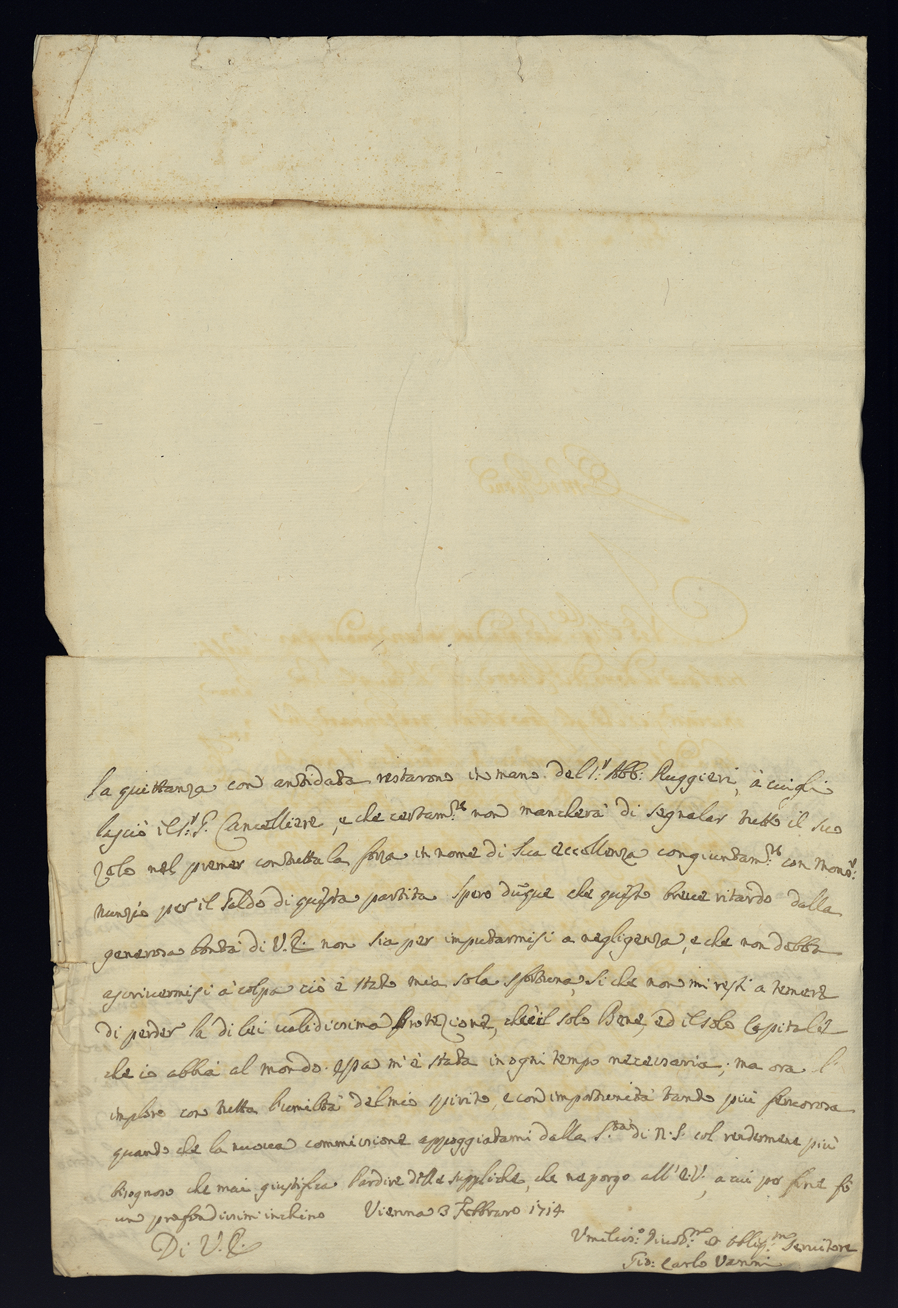 la quittanza con antidata restarono in mano del S.r Abb: Ruggieri, à cui si
lasciò il S.r S. Cancelliere, e che certam.te non mancherà di segnalar tutto il suo
zelo nel premer con tutta la forza in nome di Sua eccellenza congiuntam.te con Mons.r
nunzio per il saldo di questa partita. Spero dunque che questo breve ritardo dalla
generosa bontà di V.E. non sia per imputarmisi a negligenza, e che non debba
ascrivermisi à colpa ciò è stato mia sola sfortuna, si che non mi resti a temere
di perder la di lei validissima Protezione, ch'è il solo Bene, ed il solo Capitale
che io abbia al mondo. essa m'è stata in ogni tempo necessaria; ma ora l'
imploro con tutta l'umiltà del mio spirito, e con importunità tanto più fervorosa
quanto che la nuova commissione appoggiatami dalla S.tà di N.S. col rendermene più
bisognoso che mai giustifica l'ardire delle suppliche, che ne porgo all'E.V., a cui per fine fò
un profondissimo inchino Vienna 3 Febbraro 1714
Di V.E.
Umiliss.o Divot.mo et Obblig.mo Servitore
Gio: Carlo Vanni